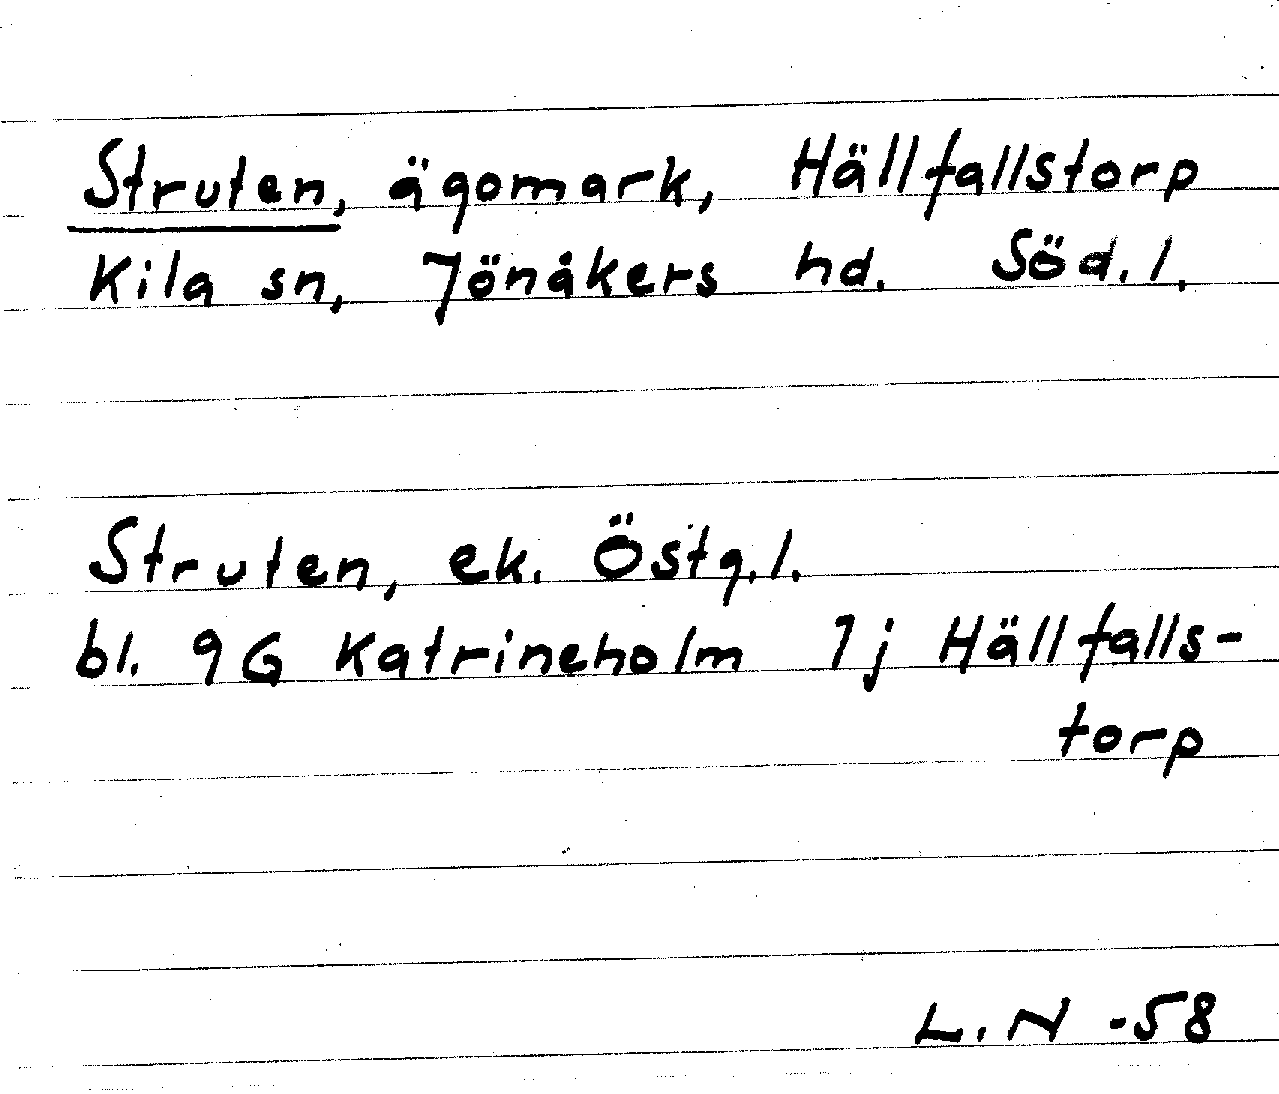 Struten, ägomark, Hällfallstorp
Kila sn, Jönåkers hd. Söd.l.
Struten, ek. Östg.l.
bl. 9G Katrineholm 1j Hällfalls-
torp
L.N -58